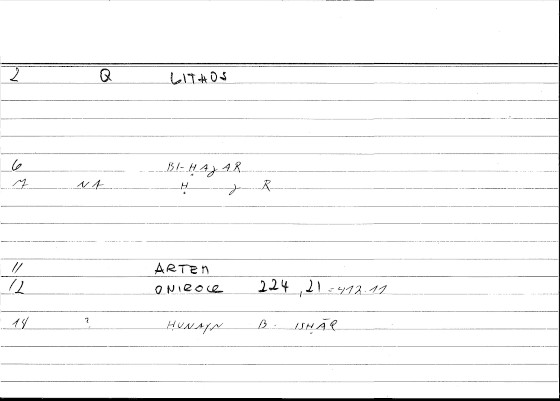 2 Q LITHOS
6 BI-ḤAJAR
M NA Ḥ J R
11 ARTEM
12 ONIROCR 224,21 = 412.11
14 ? HUNAYN B. ISḤĀQ